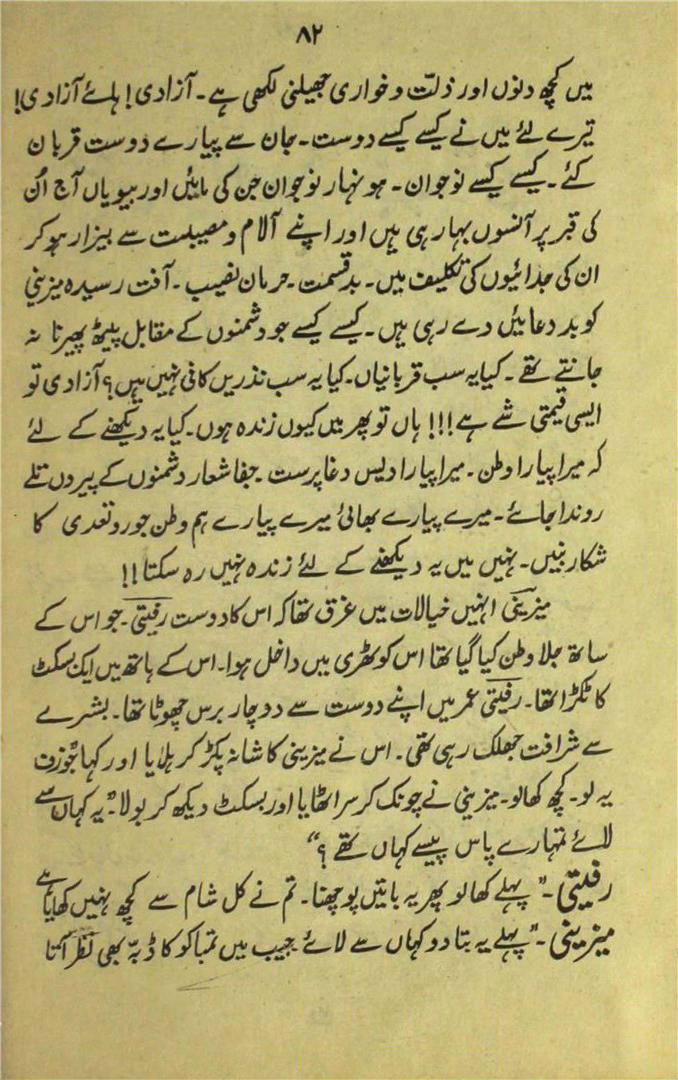 ۸۲
میں کچھ دنوں اور ذلت و خواری جھیلنی لکھی ہے۔ آزادی! ہائے آزادی!
تیرے لئے میں نے کیسے کیسے دوست۔ جان سے پیارے دوست قربان
کئے۔ کیسے کیسے نوجوان۔ ہونہار نوجوان جن کی مائیں اور بیویاں آج اُن
کی قبر پر آنسوں بہا رہی ہیں اور اپنے آلام و مصیبت سے بیزار ہو کر
ان کی جدائیوں کی تکلیف میں۔ بدقسمت۔ حرمان نصیب۔ آفت رسیدہ میزینی
کو بد دعائیں دے رہی ہیں۔ کیسے کیسے جو دشمنوں کے مقابل پیٹھ پھیرنا نہ
جانتے تھے۔ کیا یہ سب قربانیاں۔ کیا یہ سب نذریں کافی نہیں ہیں؟ آزادی تو
ایسی قیمتی شے ہے!!! ہاں تو پھر میں کیوں زندہ ہوں۔ کیا یہ دیکھنے کے لئے
کہ میرا پیارا وطن۔ میرا پیارا دیس دغا پرست۔ جفا شعار دشمنوں کے پیروں تلے
روندا جائے۔ میرے پیارے بھائی میرے پیارے ہم وطن جور و تعدی کا
شکار بنیں۔ نہیں میں یہ دیکھنے کے لئے زندہ نہیں رہ سکتا!!
میزینی انہیں خیالات میں غرق تھا کہ اس کا دوست رفیتی۔ جو اس کے
ساتھ جلا وطن کیا گیا تھا اس کوٹھری میں داخل ہوا۔ اس کے ہاتھ میں ایک بسکٹ
کا ٹکڑا تھا۔ رفیتی عمر میں اپنے دوست سے دو چار برس چھوٹا تھا۔ بشرے
سے شرافت جھلک رہی تھی۔ اس نے میزینی کا شانہ پکڑ کر ہلایا اور کہا "جوزف
یہ لو۔ کچھ کھالو۔ میزینی نے چونک کر سر اٹھایا اور بسکٹ دیکھ کر بولا۔ "یہ کہاں سے
لائے تمہارے پاس پیسے کہاں تھے؟"
رفیتی۔ "پہلے کھالو پھر یہ باتیں پوچھنا۔ تم نے کل شام سے کچھ نہیں کھایا ہے
میزینی۔ "پہلے یہ بتا دو کہاں سے لائے۔ جیب میں تمباکو کا ڈبہ بھی نظر آتا